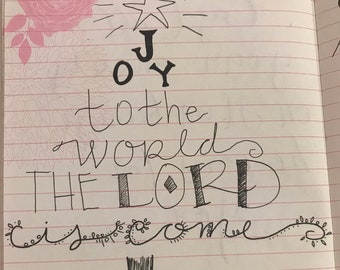 JOY
to the
world
THE LORD
is come